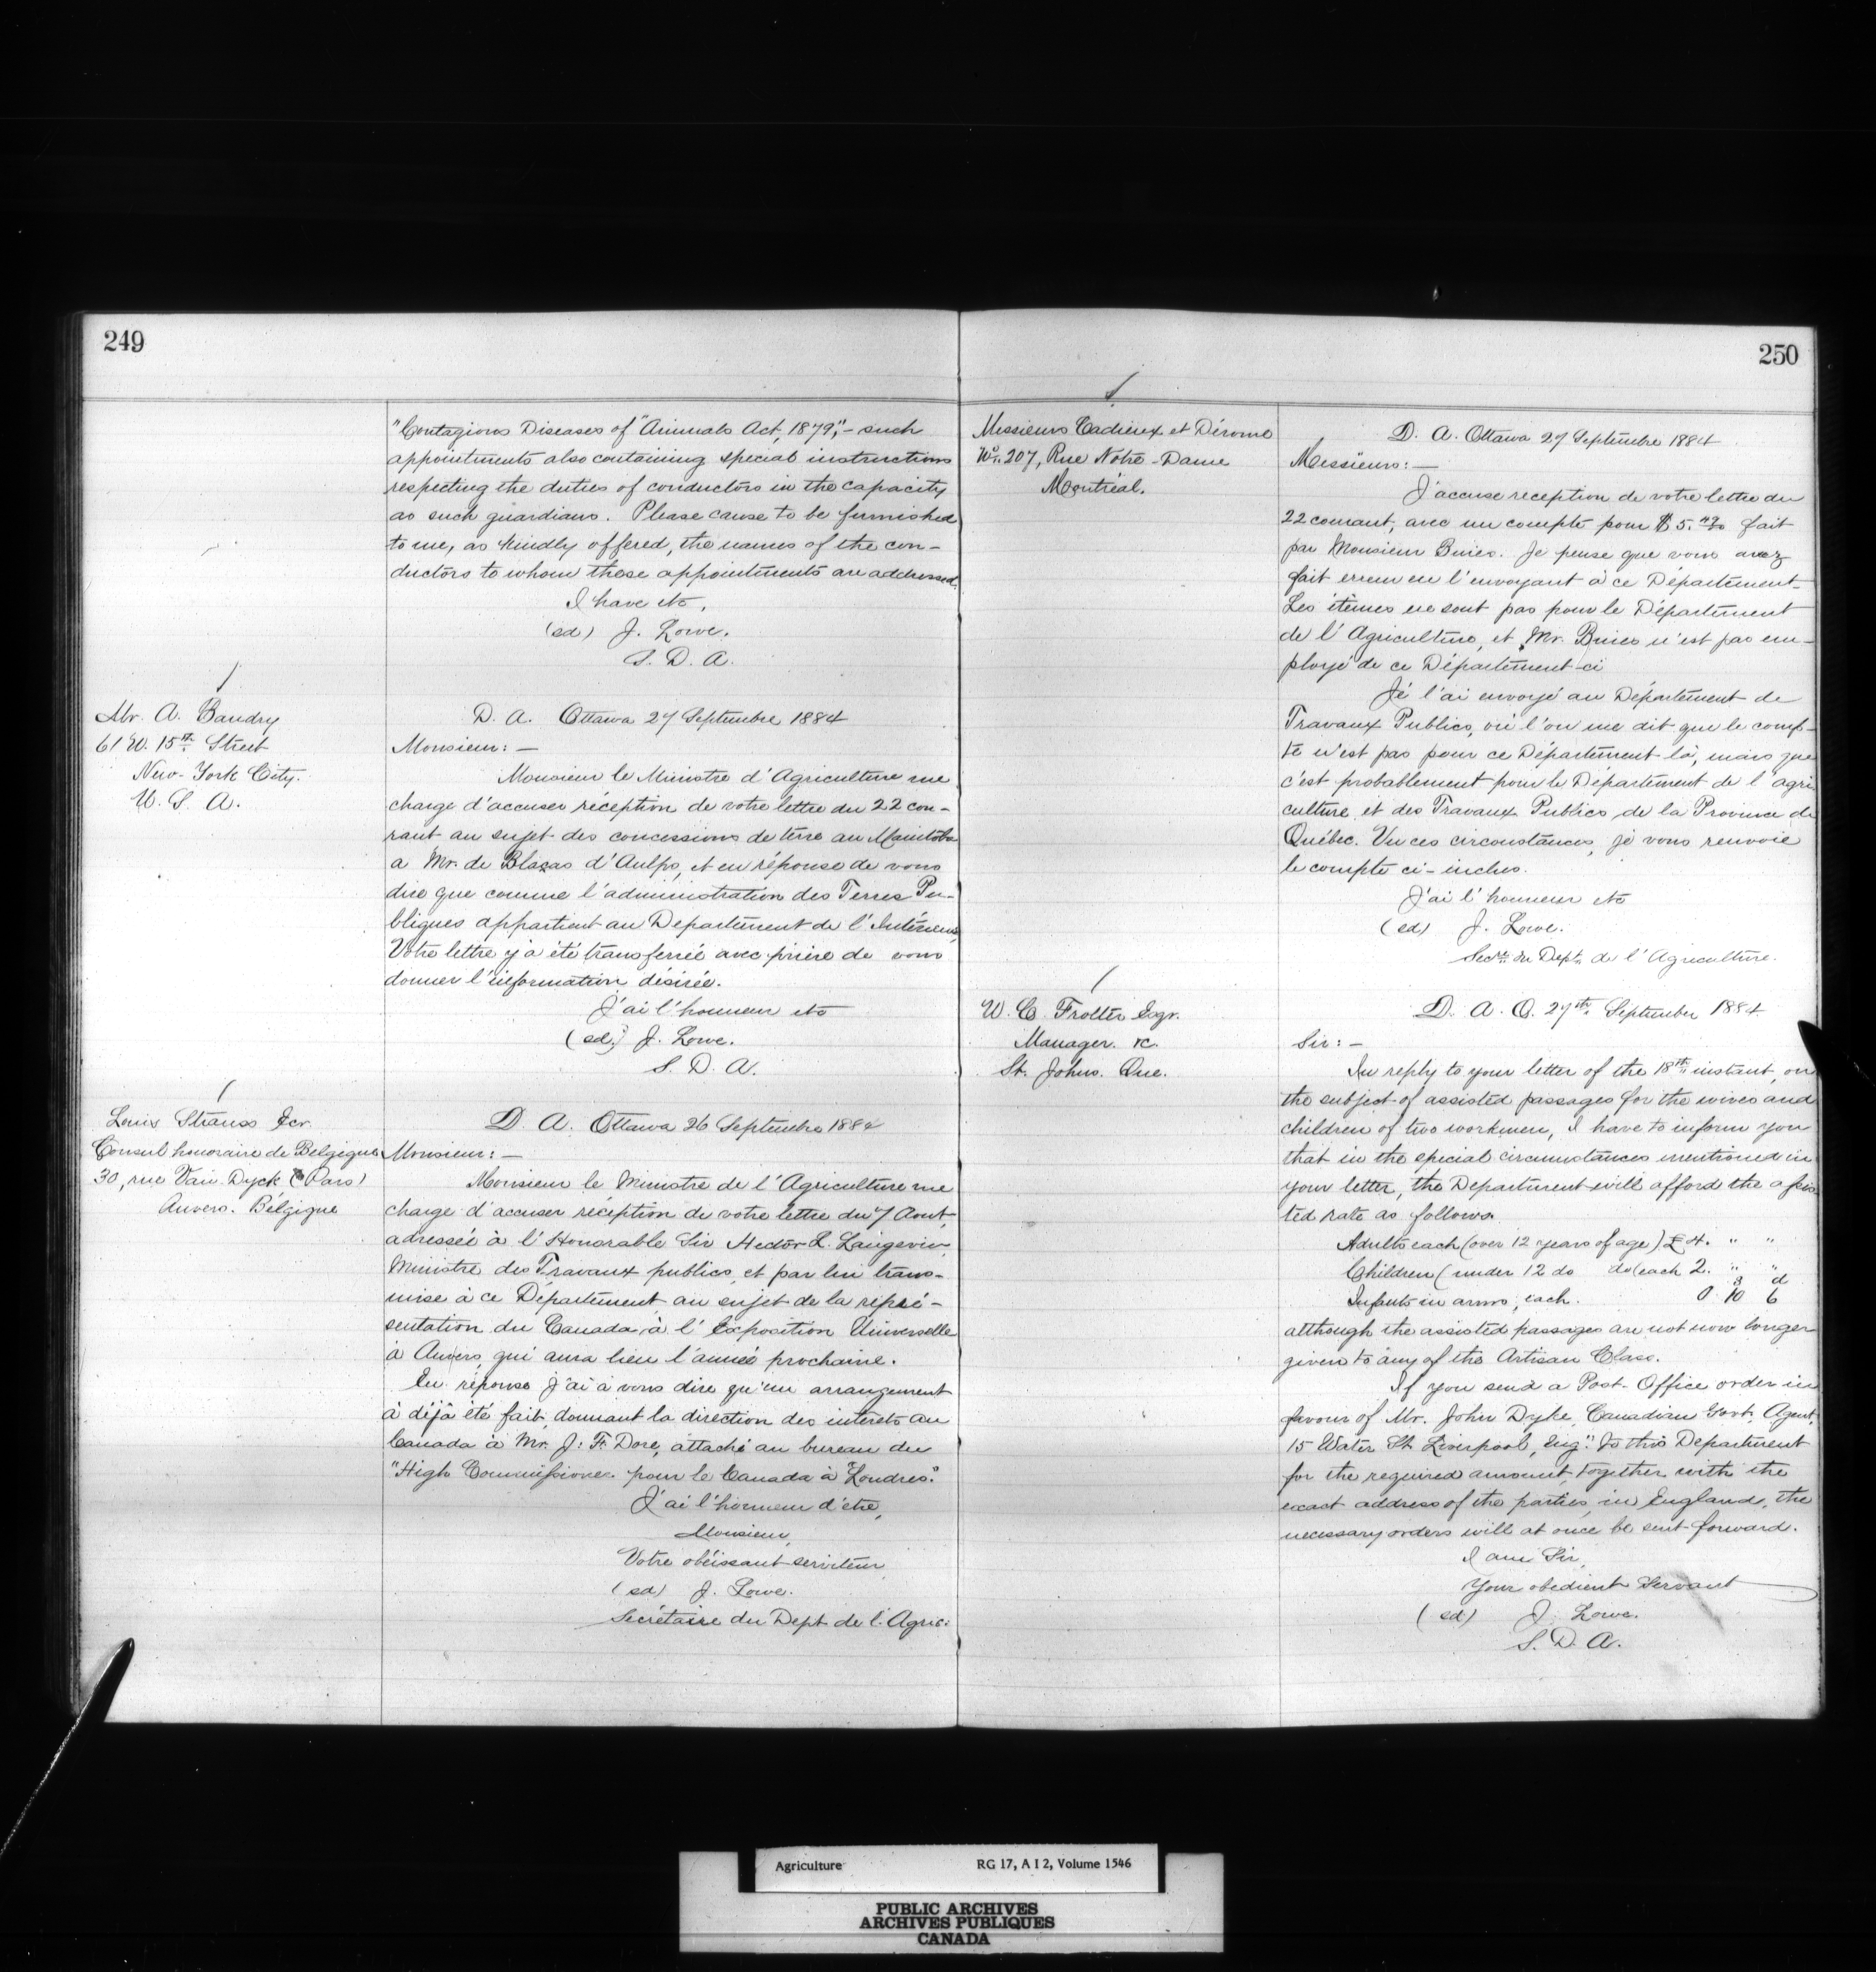 249
"Contagious Diseases of "Animals Act, 1879",- such
appointments also containing special instructions
respecting the duties of conductors in the capacity
as such guardians. Please cause to be furnished
to me, as kindly offered, the names of the con-
ductors to whom these appointments are addressed.
I have etc,
(sd) J. Lowe.
S. D. A.
Mr. A. Baudry
61 W. 15th Street
New-York City.
U. S. A.
D. A. Ottawa 27 Septembre 1884
Monsieur: —
Monsieur le Ministre d'Agriculture me
charge d'accuser réception de votre lettre du 22 cou-
rant au sujet des concessions de terre au Manitoba
a Mr. de Blacas d'Aulps, et en réponse de vous
dire que comme l'administration des Terres Pu-
bliques appartient au Departement de l'Intérieur,
Votre lettre y a été transferrée avec prière de vous
donner l'information désirée.
J'ai l'honneur etc
(sd.) J. Lowe.
S. D. A.
Louis Strauss Ecr.
Consul honoraire de Belgique
30, rue Van Dyck (Parc)
Anvers. Bélgique
D. A. Ottawa 26 Septembre 1884
Monsieur: —
Monsieur le Ministre de l'Agriculture me
charge d'accuser réception de votre lettre du 7 Aout,
adressée à l'Honorable Sir Hector L. Langevin,
Ministre des Travaux publics, et par lui trans-
mise à ce Département au sujet de la repré-
sentation du Canada à l'Exposition Universelle
à Anvers, qui aura lieu l'année prochaine.
En réponse j'ai à vous dire qu'un arrangement
à déjà été fait, donnant la direction des intérets au
Canada à Mr. J. F. Dore, attaché au bureau du
"High Commissioner pour le Canada à Londres."
J'ai l'honneur d'etre,
Monsieur,
Votre obéissant serviteur
(sd) J. Lowe.
Secrétaire du Dept de l'Agric:
250
Messieurs Cadieux et Dérome
No. 207, Rue Notre-Dame
Montréal.
D. A. Ottawa 27 Septembre 1884
Messieurs: —
J'accuse reception de votre lettre du
22 courant, avec un compte pour $5. fait
par Monsieur Buies. Je pense que vous avez
fait erreur en l'envoyant à ce Département.
Les itèmes ne sont pas pour le Département
de l'Agriculture, et Mr. Buies n'est pas em-
ployé de ce Département-ci
Je l'ai envoyé au Département de
Travaux Publics, où l'on me dit que le comp-
te n'est pas pour ce Département là, mais que
c'est probablement pour le Département de l'agri
culture et des Travaux Publics de la Province de
Québec. Vu ces circonstances, je vous renvoie
le compte ci-inclus.
J'ai l'honneur etc
(sd) J. Lowe.
Secre. du Dept. de l'Agriculture.
W. C. Trotter Esqr.
Manager. &c.
St. Johns. Que.
D. A. O. 27th September 1884
Sir: —
In reply to your letter of the 18th instant, on
the subject of assisted passages for the wives and
children of two workmen, I have to inform you
that in the special circumstances mentioned in
your letter, the Department will afford the assis
ted rate as follows.
Adults each (over 12 years of age) £4. " "
Children (under 12 do do) each 2. " "
s d
Infants in arms, each. 0 10 6
although the assisted passages are not now longer
given to any of the Artisan Class.
If you send a Post-Office order in
favour of Mr. John Dyke, Canadian Govt. Agent,
15 Water St. Liverpool, Eng." to this Department
for the required amount, together with the
exact address of the parties, in England, the
necessary orders will at once be sent forward.
I am Sir,
Your obedient Servant
(sd) J. Lowe.
S. D. A.
Agriculture RG 17, A I 2, Volume 1546
PUBLIC ARCHIVES
ARCHIVES PUBLIQUES
CANADA